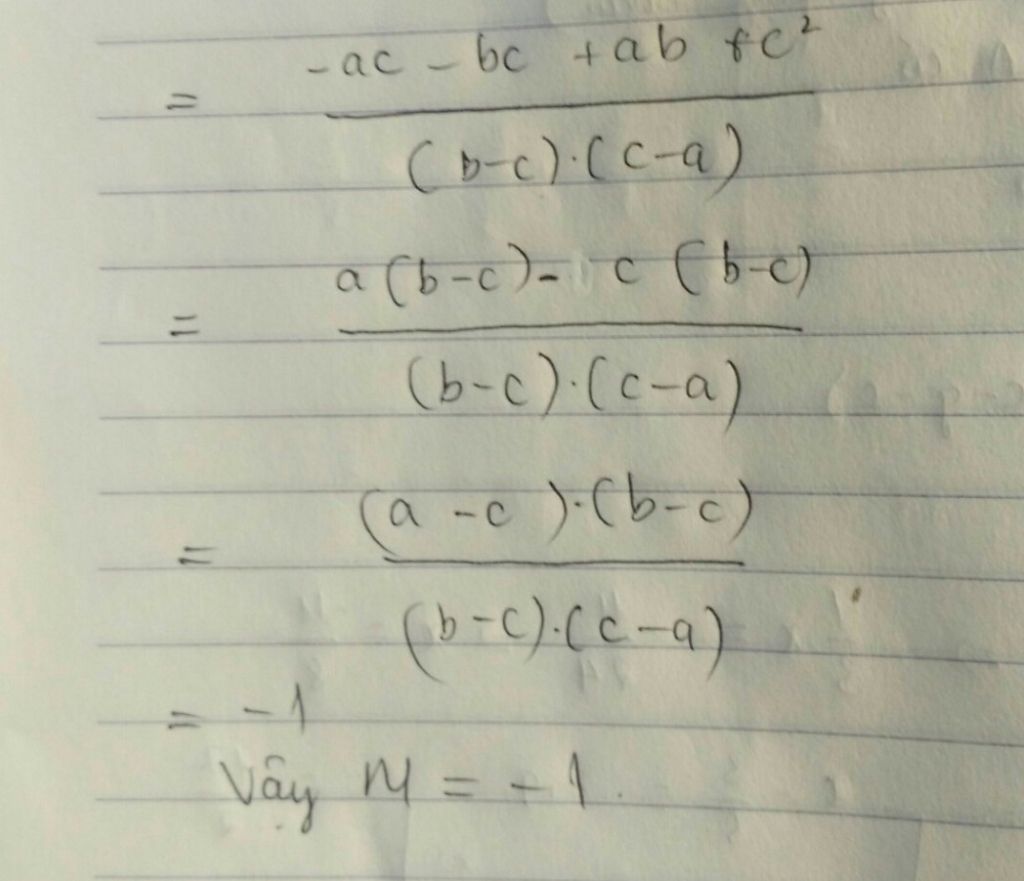 -ac - bc + ab + c²
=
(b-c).(c-a)
a(b-c) - c(b-c)
=
(b-c).(c-a)
(a-c).(b-c)
=
(b-c).(c-a)
= -1
Vậy M = -1.